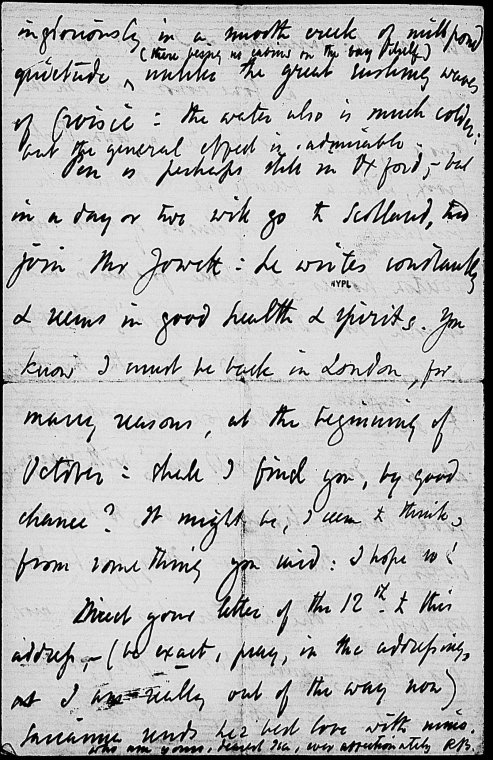 ingloriously in a smooth creek of millpond
(there being no cabins on the bay itself)
quietude ^ unlike the great rushing waves
of Croisic : the water also is much colder.
but the general effect is admirable
Pen is perhaps still in Oxford, – but
in a day or two will go to Scotland, to
join Mr Jowett : he writes constantly
NYPL
& seems in good health & spirits. You
know I must be back in London, for
many reasons, at the beginning of
October : shall I find you, by good
chance? It might be, I seem to think,
from something you said : I hope so!
Direct your letter of the 12th. to this
address, – (be exact, pray, in the addressing,
as I am really out of the way now)
Sarianna sends her best love with mine.
who am yours, dearest Isa, ever affectionately RB.